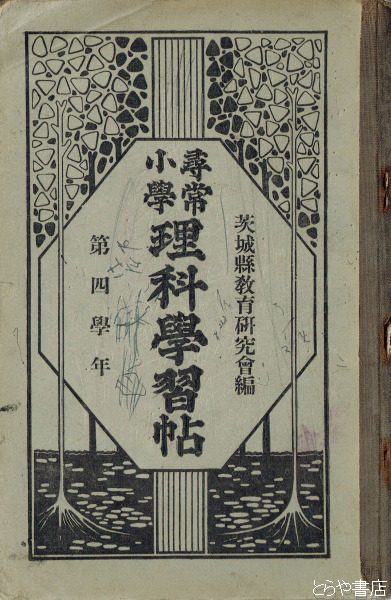 茨城縣敎育硏究會編
尋常
小學
理科學習帖
第四學年
とらや書店